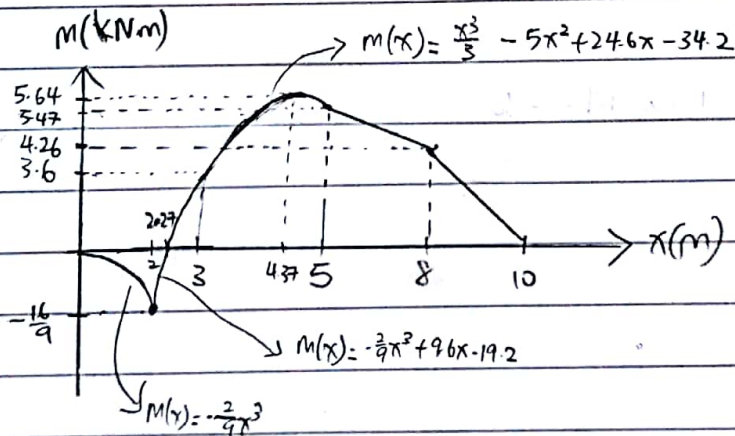 M(kNm)
m(x) = x³/3 - 5x² + 24.6x - 34.2
5.64
5.47
4.26
3.6
2.27
2 3 4.37 5 8 10 x(m)
-16/9
M(x) = -2/9x³ + 9.6x - 19.2
M(x) = -2/9x³